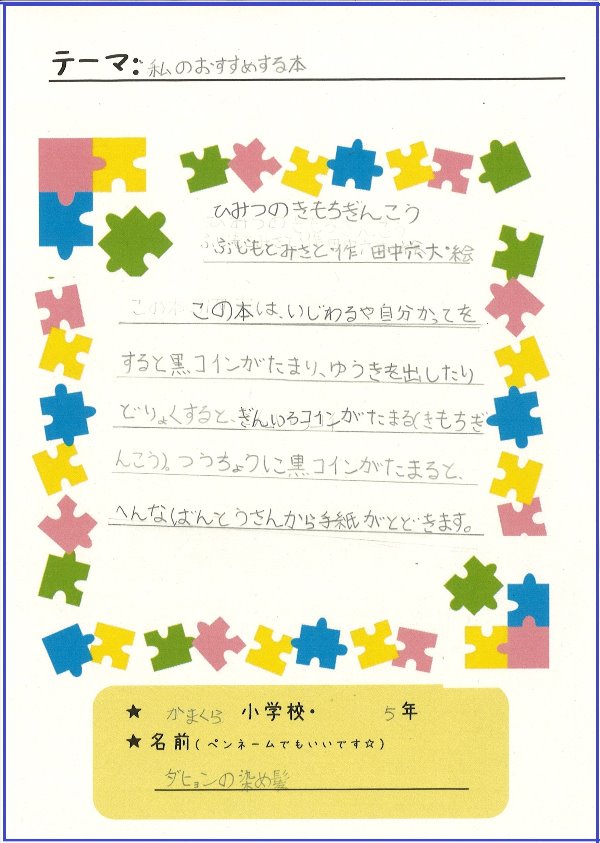 テーマ:私のおすすめする本
ひみつのきもちぎんこう
ふじもとみさと・作/田中六大・絵
この本は、いじわるや自分かってを
すると黒コインがたまり、ゆうきを出したり
どりょくすると、ぎんいろコインがたまる(きもちぎ
んこう)。つうちょうに黒コインがたまると、
へんなばんとうさんから手紙がとどきます。
★ かまくら 小学校・ 5年
★名前(ペンネームでもいいです☆)
ダヒョンの染め髪